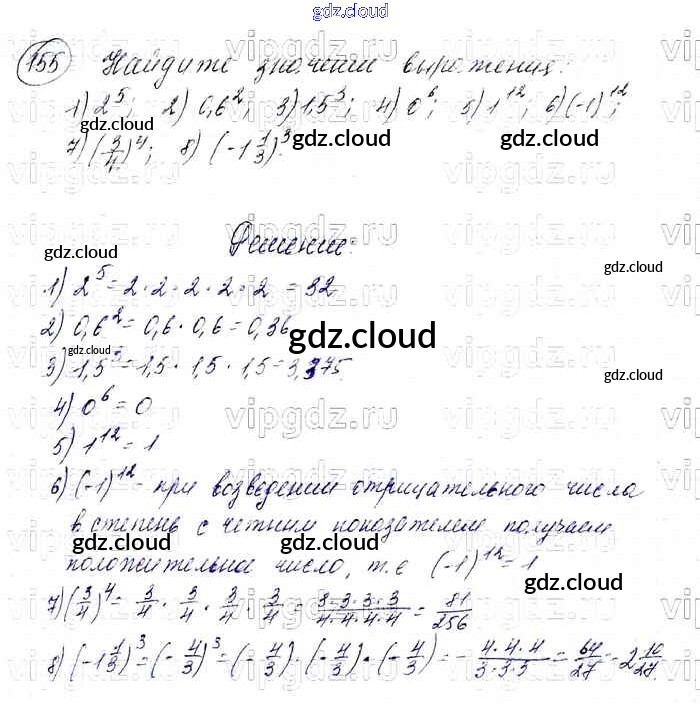 gdz.cloud
vipgdz.ru
155 Найдите значение выражения:
1) 2^5; 2) 0,6^2; 3) 1,5^3; 4) 0^6; 5) 1^12; 6) (-1)^12;
gdz.cloud gdz.cloud gdz.cloud
7) (3/4)^4; 8) (-1 1/3)^3.
vipgdz.ru vipgdz.ru vipgdz.ru
gdz.cloud
Решение:
gdz.cloud
1) 2^5 = 2 · 2 · 2 · 2 · 2 = 32
2) 0,6^2 = 0,6 · 0,6 = 0,36
gdz.cloud
gdz.cloud
3) 1,5^3 = 1,5 · 1,5 · 1,5 = 3,375
gdz.cloud
4) 0^6 = 0
vipgdz.ru vipgdz.ru
5) 1^12 = 1
6) (-1)^12 - при возведении отрицательного числа
в степень с четным показателем получаем
gdz.cloud gdz.cloud gdz.cloud
положительное число, т.е (-1)^12 = 1
gdz.cloud
7) (3/4)^4 = 3/4 · 3/4 · 3/4 · 3/4 = 3·3·3·3/4·4·4·4 = 81/256
8) (-1 1/3)^3 = (-4/3)^3 = (-4/3) · (-4/3) · (-4/3) = - 4·4·4/3·3·3 = 64/27 = 2 10/27